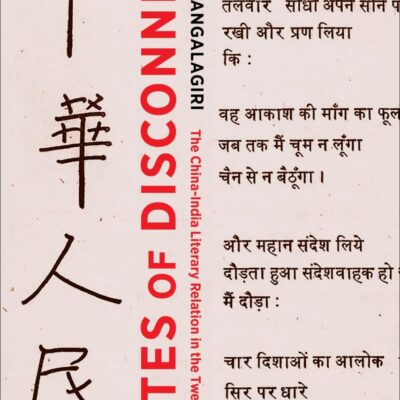 華
人
民
TES OF DISCONN
ANGALAGIRI
The China-India Literary Relation in the Twe
तलवार सीधी अपने सीने
रखी और प्रण लिया
कि :
वह आकाश की माँग का फूल
जब तक मैं चूम न लूँगा
चैन से न बैठूँगा ।
और महान संदेश लिये
दौड़ता हुआ संदेशवाहक हो
मैं दौड़ा :
चार दिशाओं का आलोक
सिर पर धारे